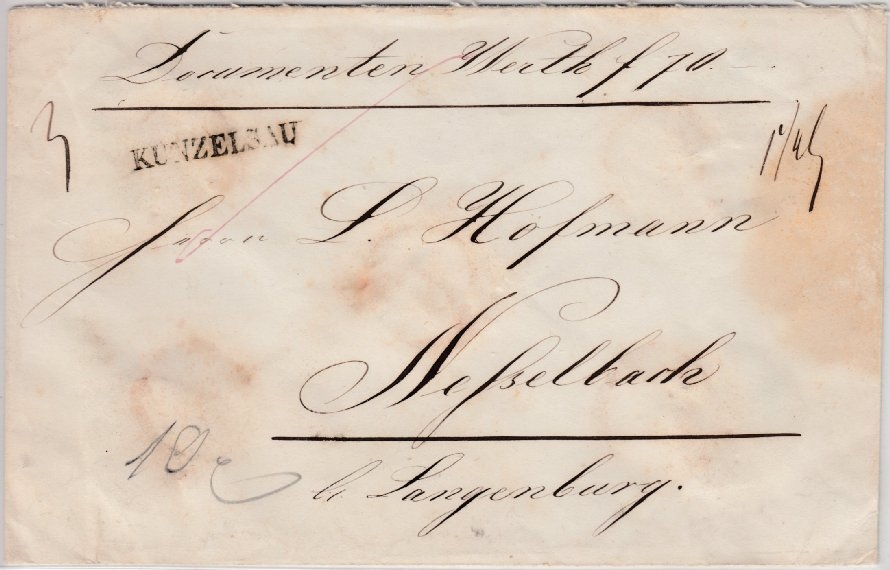 Documenten Werth f 70.
3
KÜNZELSAU
Herrn L. Hofmann
Neßelbach
10
b. Langenburg.